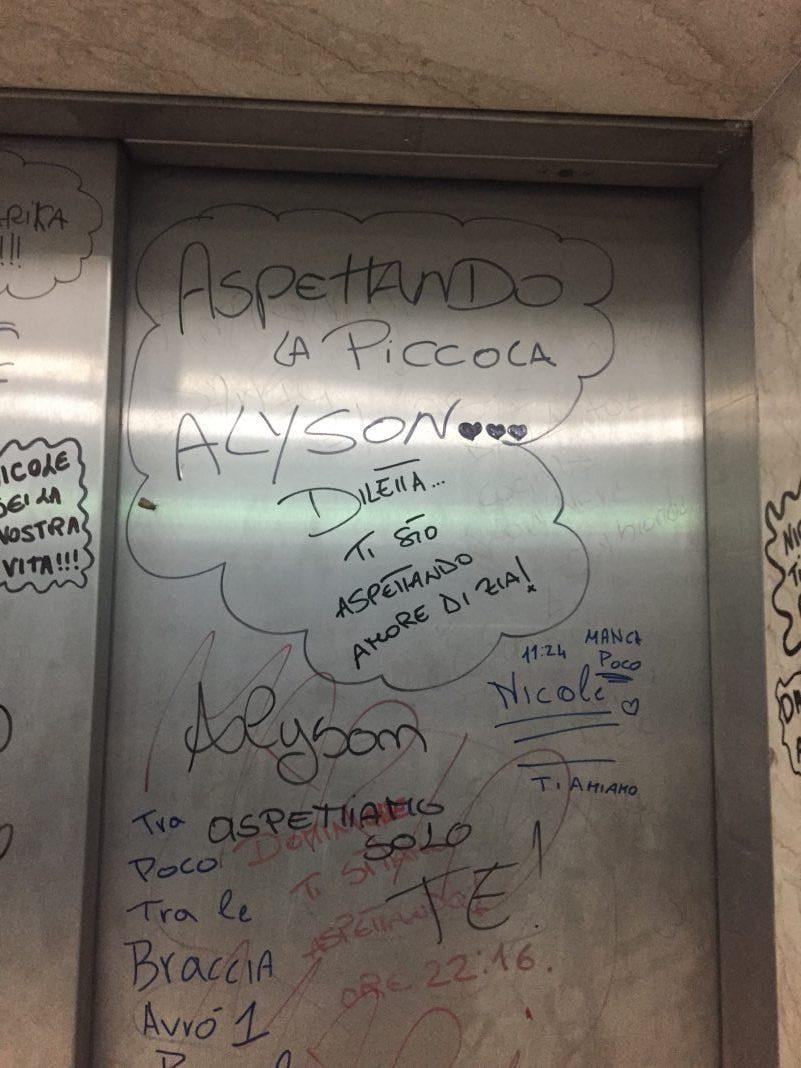 !!!
ASPETTANDO
LA PICCOLA
ALYSON...
DILETTA...
TI STO
ASPETTANDO
AMORE DI ZIA!
SEI LA
NOSTRA
VITA!!!
11:24 MANCA
POCO
Nicole
TI AMIAMO
Alyson
ASPETTIAMO
SOLO
TE!
Tra
POCO
Tra le
BRACCIA
AVRÓ 1
DOMINIQUE
TI STIAMO
ASPETTANDO!
ORE 22:16.